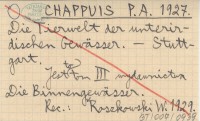 CHAPPUIS P.A. 1927.
Die Tierwelt der unterir-
dischen Gewässer. — Stutt-
gart.
Jest to III wydawnictwa
Die Binnengewässer.
Rec.: Roszkowski W. 1929.
BT1009/0939